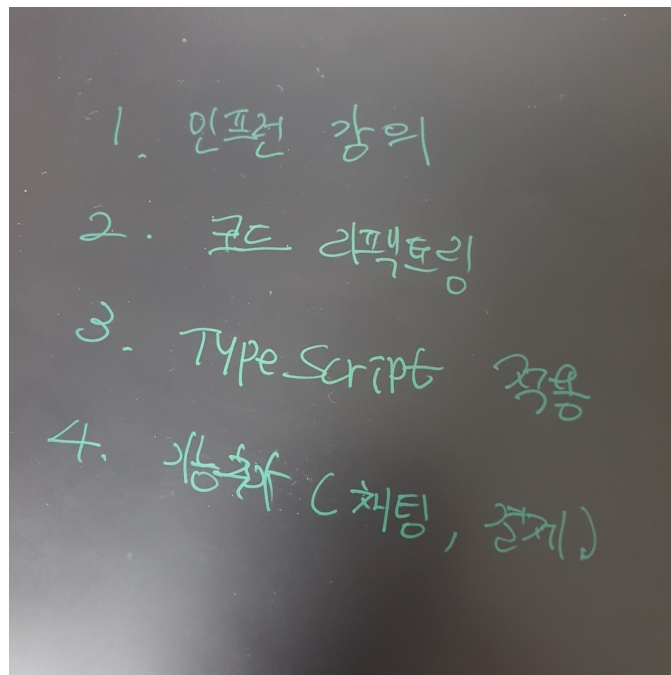 1. 인프런 강의
2. 코드 리팩토링
3. TypeScript 적용
4. 기능추가 (채팅, 결제)